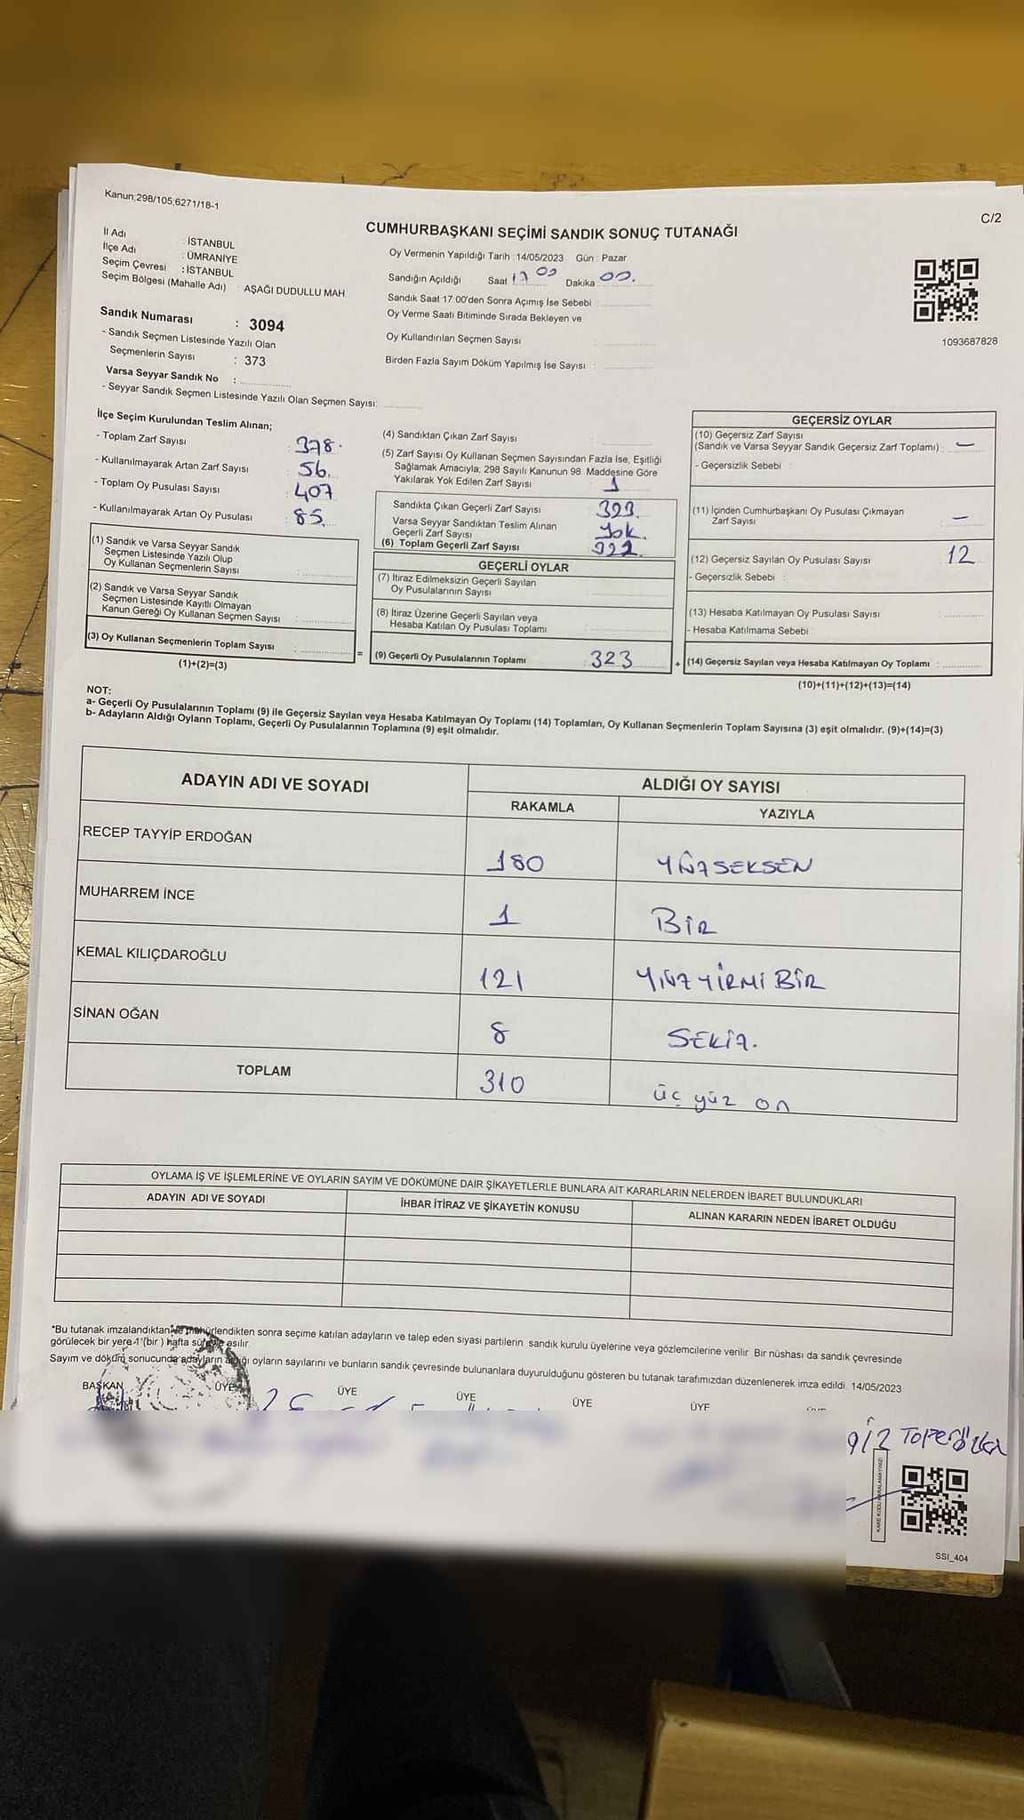 Kanun;298/105;6271/18-1
C/2
CUMHURBAŞKANI SEÇİMİ SANDIK SONUÇ TUTANAĞI
İl Adı : İSTANBUL
İlçe Adı : ÜMRANİYE
Seçim Çevresi : İSTANBUL
Seçim Bölgesi (Mahalle Adı) : AŞAĞI DUDULLU MAH
Sandık Numarası : 3094
- Sandık Seçmen Listesinde Yazılı Olan
Seçmenlerin Sayısı : 373
Varsa Seyyar Sandık No :
- Seyyar Sandık Seçmen Listesinde Yazılı Olan Seçmen Sayısı:
Oy Vermenin Yapıldığı Tarih : 14/05/2023 Gün : Pazar
Sandığın Açıldığı Saat 17 00 Dakika 00.
Sandık Saat 17 00'den Sonra Açımış İse Sebebi
Oy Verme Saati Bitiminde Sırada Bekleyen ve
Oy Kullandırılan Seçmen Sayısı
Birden Fazla Sayım Döküm Yapılmış İse Sayısı :
1093687828
İlçe Seçim Kurulundan Teslim Alınan;
- Toplam Zarf Sayısı 378.
- Kullanılmayarak Artan Zarf Sayısı 56.
- Toplam Oy Pusulası Sayısı 407
- Kullanılmayarak Artan Oy Pusulası 85.
(1) Sandık ve Varsa Seyyar Sandık
Seçmen Listesinde Yazılı Olup
Oy Kullanan Seçmenlerin Sayısı :
(2) Sandık ve Varsa Seyyar Sandık
Seçmen Listesinde Kayıtlı Olmayan
Kanun Gereği Oy Kullanan Seçmen Sayısı :
(3) Oy Kullanan Seçmenlerin Toplam Sayısı :
(1)+(2)=(3)
=
(4) Sandıktan Çıkan Zarf Sayısı
(5) Zarf Sayısı Oy Kullanan Seçmen Sayısından Fazla İse, Eşitliği
Sağlamak Amacıyla, 298 Sayılı Kanunun 98. Maddesine Göre
Yakılarak Yok Edilen Zarf Sayısı 1
Sandıkta Çıkan Geçerli Zarf Sayısı 323.
Varsa Seyyar Sandıktan Teslim Alınan
Geçerli Zarf Sayısı Yok.
(6) Toplam Geçerli Zarf Sayısı
GEÇERLİ OYLAR
(7) İtiraz Edilmeksizin Geçerli Sayılan
Oy Pusulalarının Sayısı :
(8) İtiraz Üzerine Geçerli Sayılan veya
Hesaba Katılan Oy Pusulası Toplamı
(9) Geçerli Oy Pusulalarının Toplamı 323
+
GEÇERSİZ OYLAR
(10) Geçersiz Zarf Sayısı
(Sandık ve Varsa Seyyar Sandık Geçersiz Zarf Toplamı) : —
- Geçersizlik Sebebi :
(11) İçinden Cumhurbaşkanı Oy Pusulası Çıkmayan
Zarf Sayısı —
(12) Geçersiz Sayılan Oy Pusulası Sayısı 12
- Geçersizlik Sebebi :
(13) Hesaba Katılmayan Oy Pusulası Sayısı :
- Hesaba Katılmama Sebebi :
(14) Geçersiz Sayılan veya Hesaba Katılmayan Oy Toplamı :
(10)+(11)+(12)+(13)=(14)
NOT:
a- Geçerli Oy Pusulalarının Toplamı (9) ile Geçersiz Sayılan veya Hesaba Katılmayan Oy Toplamı (14) Toplamları, Oy Kullanan Seçmenlerin Toplam Sayısına (3) eşit olmalıdır. (9)+(14)=(3)
b- Adayların Aldığı Oyların Toplamı, Geçerli Oy Pusulalarının Toplamına (9) eşit olmalıdır.
ADAYIN ADI VE SOYADI
ALDIĞI OY SAYISI
RAKAMLA YAZIYLA
RECEP TAYYİP ERDOĞAN 180 YÜZSEKSEN
MUHARREM İNCE 1 BİR
KEMAL KILIÇDAROĞLU 121 YÜZYİRMİ BİR
SİNAN OĞAN 8 SEKİZ.
TOPLAM 310 üç yüz on
OYLAMA İŞ VE İŞLEMLERİNE VE OYLARIN SAYIM VE DÖKÜMÜNE DAİR ŞİKAYETLERLE BUNLARA AİT KARARLARIN NELERDEN İBARET BULUNDUKLARI
ADAYIN ADI VE SOYADI İHBAR İTİRAZ VE ŞİKAYETİN KONUSU ALINAN KARARIN NEDEN İBARET OLDUĞU
*Bu tutanak imzalandıktan ve mühürlendikten sonra seçime katılan adayların ve talep eden siyasi partilerin sandık kurulu üyelerine veya gözlemcilerine verilir. Bir nüshası da sandık çevresinde
görülecek bir yere 1 (bir ) hafta süreyle asılır.
Sayım ve döküm sonucunda adayların aldığı oyların sayılarını ve bunların sandık çevresinde bulunanlara duyurulduğunu gösteren bu tutanak tarafımızdan düzenlenerek imza edildi. 14/05/2023
BAŞKAN ÜYE ÜYE ÜYE ÜYE ÜYE
SSI_404